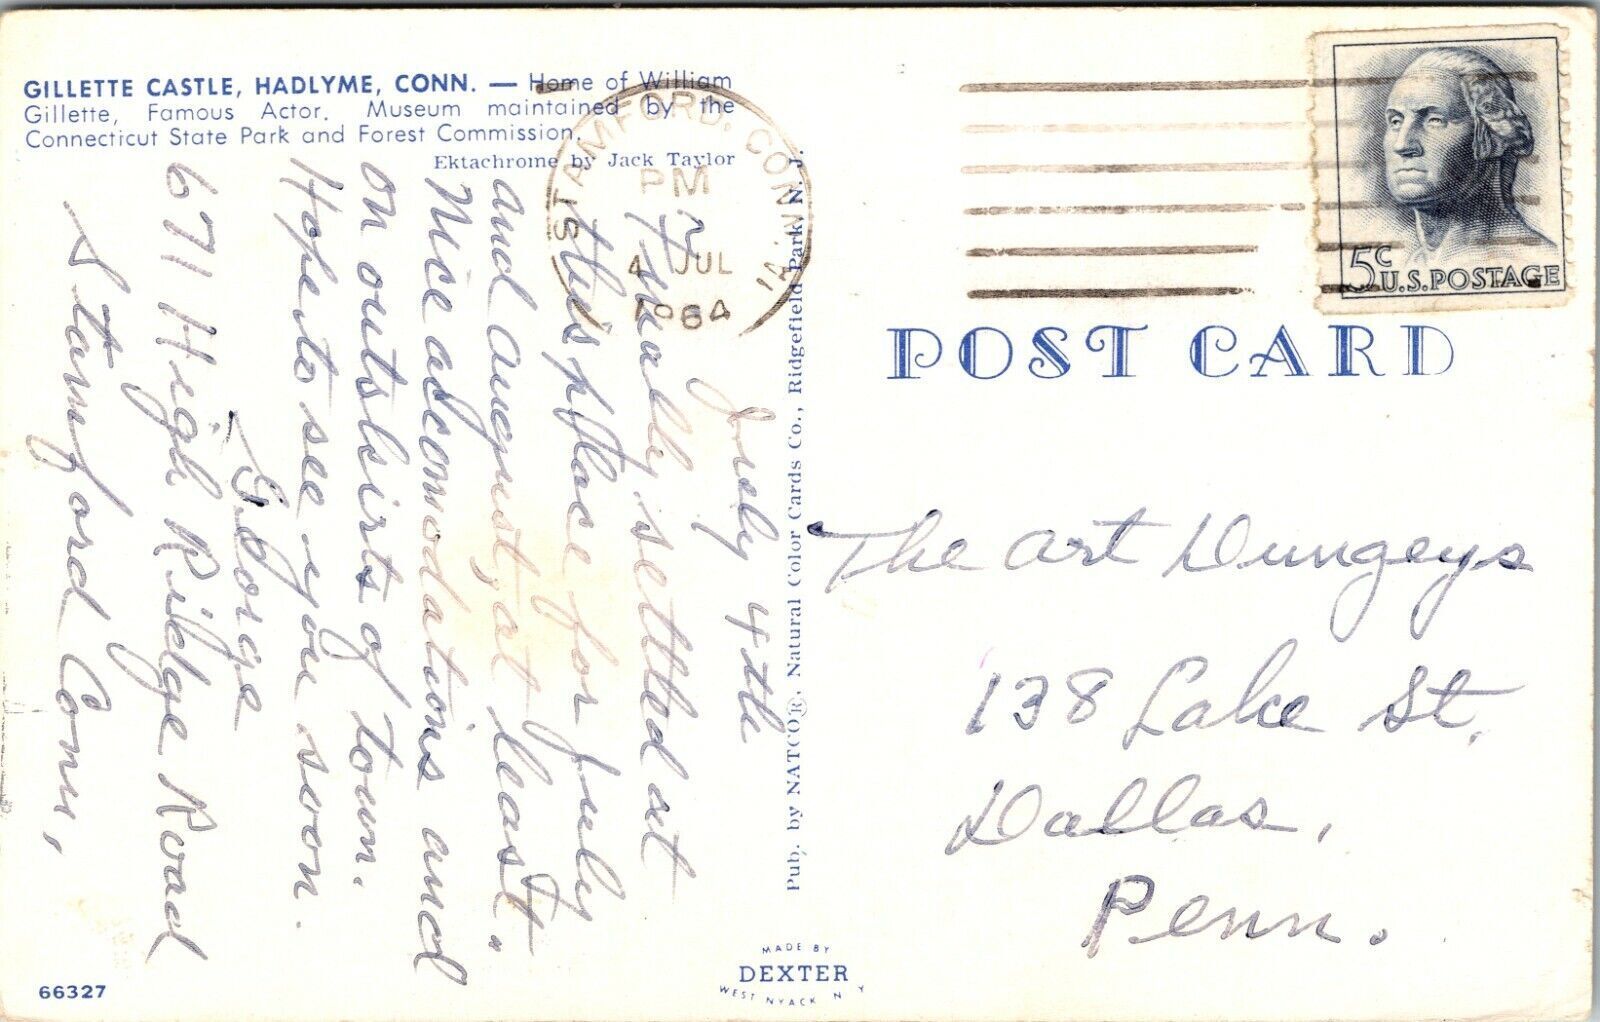 GILLETTE CASTLE, HADLYME, CONN. — Home of William
Gillette, Famous Actor. Museum maintained by the
Connecticut State Park and Forest Commission.
Ektachrome by Jack Taylor
July 4th
Finally settled at
this place for July
and August, at least.
Nice accomodations and
on outskirts of town.
Hope to see you soon.
George
671 High Ridge Road
Stamford Conn,
66327
STAMFORD, CONN.
PM
4 JUL
1964
Pub. by NATCO®, Natural Color Cards Co., Ridgefield Park, N. J.
MADE BY
DEXTER
WEST NYACK N Y
5c
U.S. POSTAGE
POST CARD
The Art Dungeys
138 Lake St,
Dallas,
Penn.